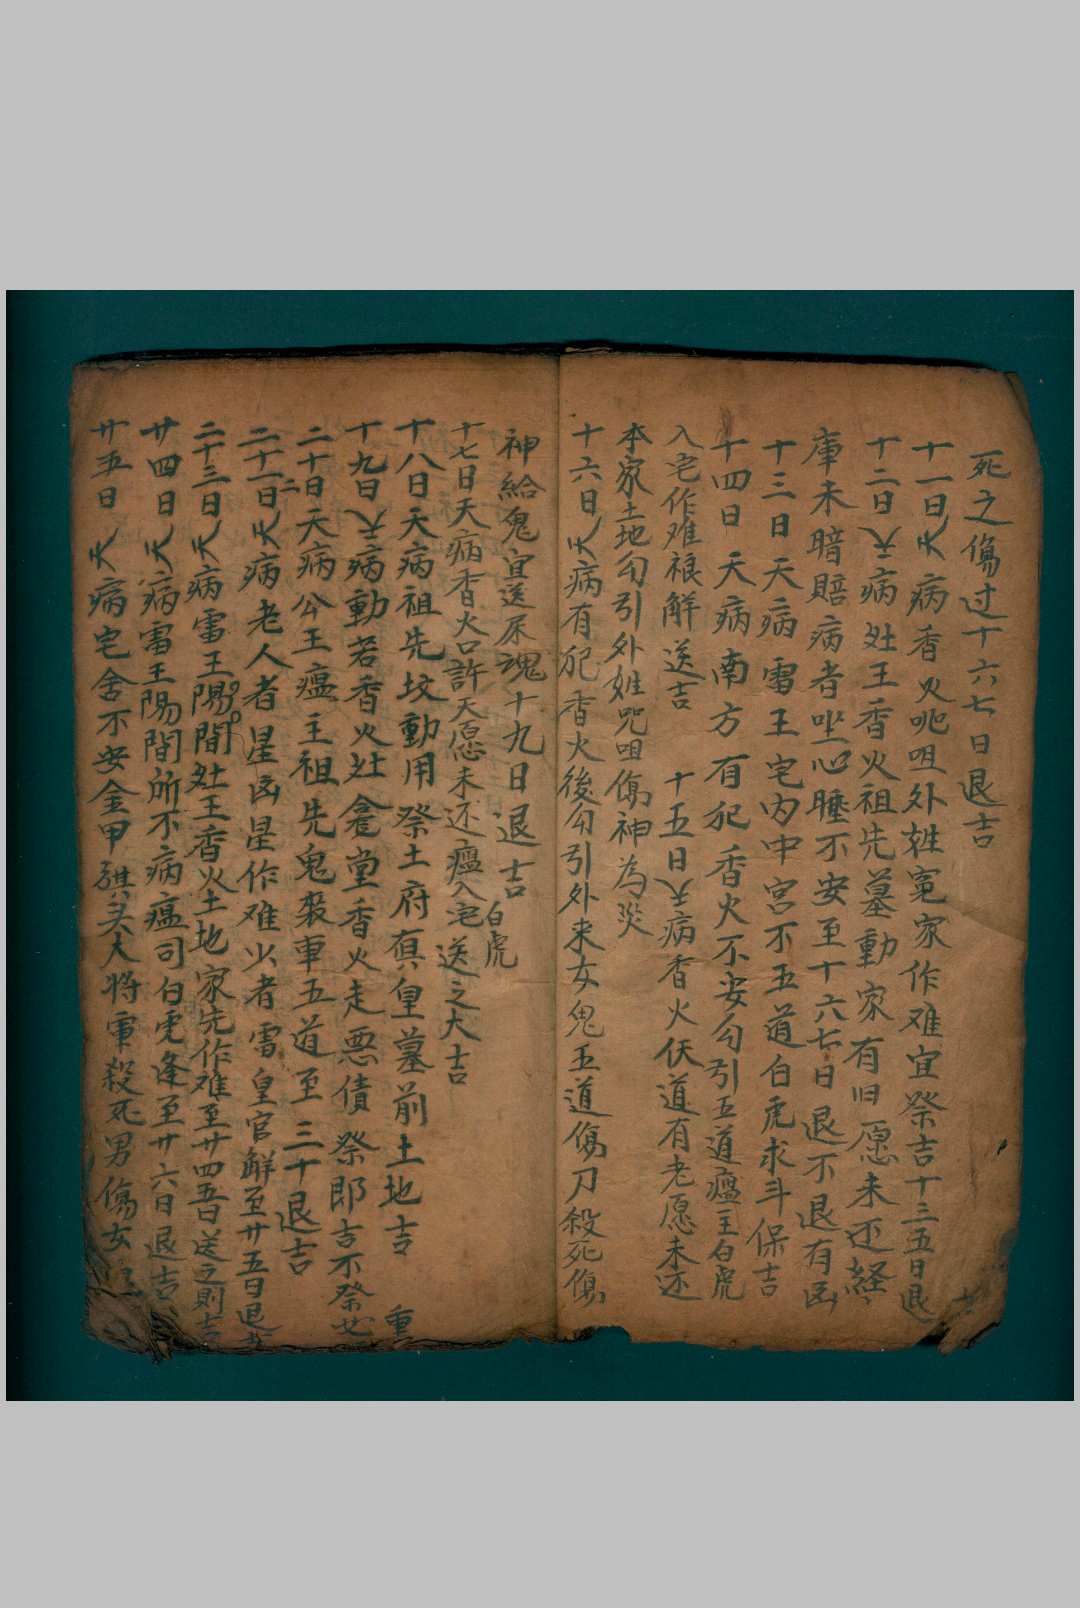 死之傷过十六七日退吉
十一日火病香火呪咀外姓冤家作难宜祭吉十三五日退
十二日火病灶王香火祖先墓動家有旧愿未还経
庫未暗賠病者坐心腫不安至十六七日退不退有凶
十三日天病雷王宅内中宮不五道白虎求斗保吉
十四日天病南方有犯香火不安勾引五道瘟王白虎
入宅作难禳解送吉 十五日火病香火伏道有老愿未还
本家土地勾引外姓呪咀傷神為災
十六日火病有犯香火後勾引外来女鬼五道傷刀殺死傷
神給鬼宜送尿魂十九日退吉
白虎
十七日天病香火口許天愿未还瘟入宅送之大吉
十八日天病祖先坟動用祭土府俱皇墓前土地吉 重
十九日火病動若香火灶龕堂香火走悪債祭郎吉不祭
二十日天病公王瘟主祖先鬼裝車五道至三十退吉
二十一日火病老人者星凶星作难少者雷皇官解至廿五日退
二十三日火病雷王陽間灶王香火土地家先作难至廿四五日送之則吉
廿四日火病雷王陽間所不病瘟司白虎逢至廿六日退吉
廿五日火病宅舍不安金甲騏头大将軍殺死男傷女